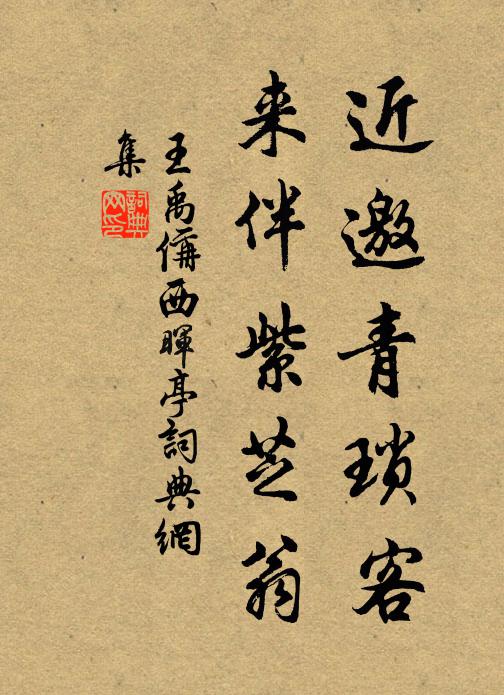 近邀青瑣客
来伴紫芝翁
王禹偁西暉亭詞典網
集
詞典
网印